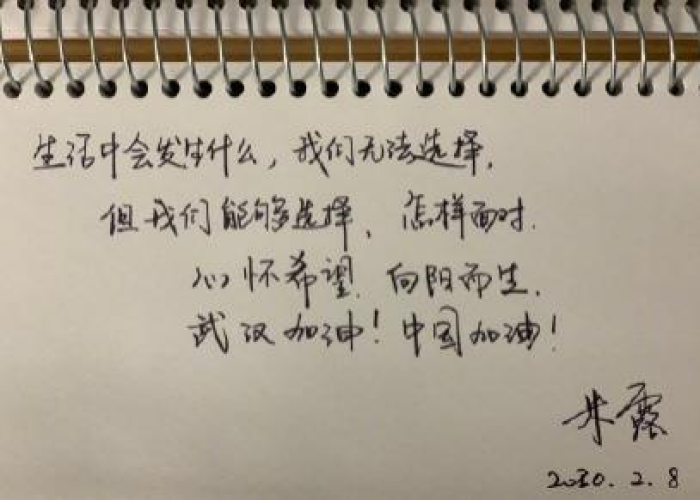 生活中会发生什么，我们无法选择，
但我们能够选择、怎样面对.
心怀希望 向阳而生.
武汉加油！中国加油！
朱露
2020.2.8